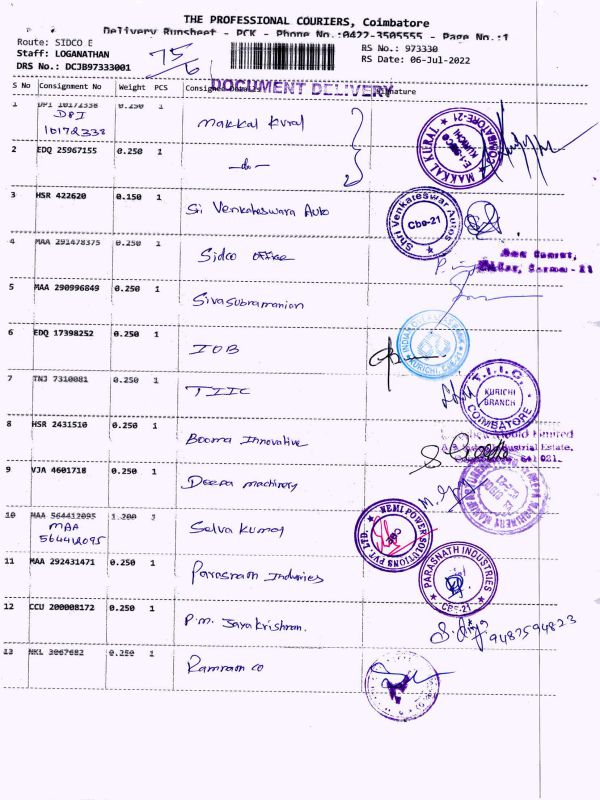 THE PROFESSIONAL COURIERS, Coimbatore
Delivery Runsheet - PCK - Phone No.:0422-3505555 - Page No.:1
Route: SIDCO E
Staff: LOGANATHAN
DRS No.: DCJB97333001
75/6
RS No.: 973330
RS Date: 06-Jul-2022
DOCUMENT DELIVERY
S No Consignment No Weight PCS Consignee Details Signature
1 DPI 10172338 0.250 1 Makkal Kural
DPI
10172338
MAKKAL KURAL
KURICHI
COIMBATORE-21
2 EDQ 25967155 0.250 1 -do-
3 HSR 422620 0.150 1 Sri Venkateswara Auto
Shri Venkateswar Autos
Cbe-21
4 MAA 291478375 0.250 1 Sidco office
5 MAA 290996849 0.250 1 Sivasubramanian
6 EDQ 17398252 1 0.250 IOB
7 TNJ 7310081 0.250 1 TIIC
T.I.I.C.
KURICHI
BRANCH
COIMBATORE
8 HSR 2431510 0.250 1 Booma Innovative
Limited
Industrial Estate,
641 021.
9 VJA 4601718 0.250 1 Deepa machinery
10 MAA 564412095 1.200 1 Selva Kumar
MAA
564412095
NEMI POWER SOLUTIONS PVT. LTD.
11 MAA 292431471 0.250 1 Parasnam Industries
PARASNATH INDUSTRIES
CBE-21
12 CCU 200008172 0.250 1 P.M. Jayakrishnan.
9487594823
13 NKL 3067682 0.250 1 Ramram co